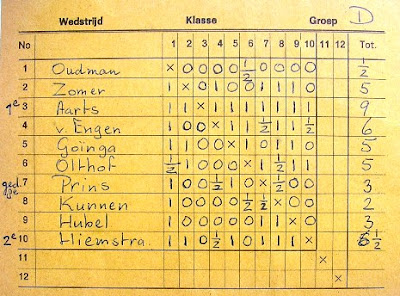 Wedstrijd Klasse Groep D
No 1 2 3 4 5 6 7 8 9 10 11 12 Tot.
1 Oudman × 0 0 0 0 ½ 0 0 0 0 ½
2 Zomer 1 × 0 1 0 0 1 1 1 0 5
1e 3 Aarts 1 1 × 1 1 1 1 1 1 1 9
4 v. Engen 1 0 0 × 1 1 ½ 1 1 ½ 6
5 Goinga 1 1 0 0 × 1 0 1 1 0 5
6 Olthof ½ 1 0 0 0 × 1 ½ 1 1 5
ged. 7 Prins 1 0 0 ½ 1 0 × ½ 0 0 3
8 Kunnen 1 0 0 0 0 ½ ½ × 0 0 2
9 Hubel 1 0 0 0 0 0 1 1 × 0 3
2e 10 Hiemstra. 1 1 0 ½ 1 0 1 1 1 × 6 ½
11 ×
12 ×